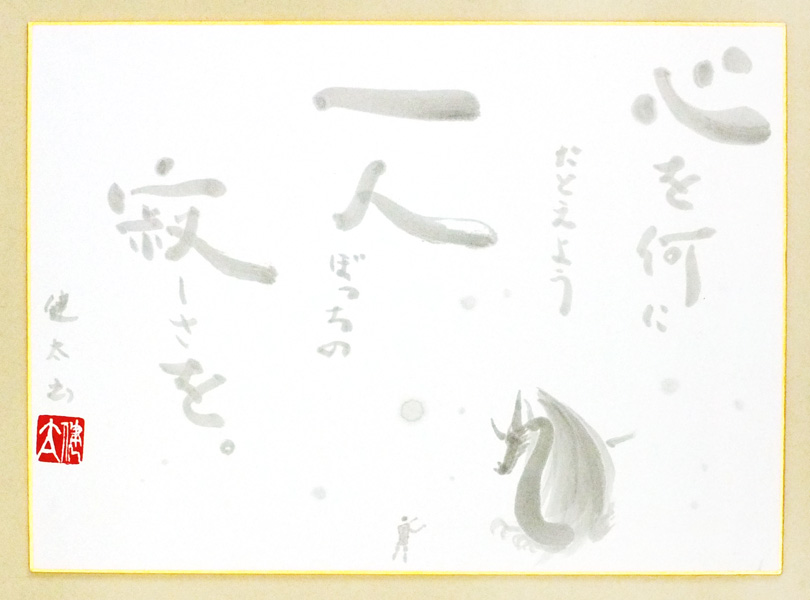 心を何に
たとえよう
一人
ぼっちの
寂しさを。
健太書
健太